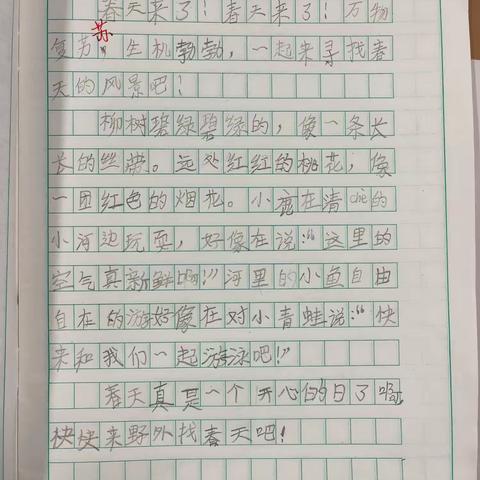 春天来了！春天来了！万物
苏
复苏，生机勃勃，一起来寻找春
天的风景吧！
柳树碧绿碧绿的，像一条长
长的丝带。远处红红的桃花，像
一团红色的烟花。小鹿在清chè的
小河边玩耍，好像在说：“这里的
空气真新鲜啊！”河里的小鱼自由
自在的游好像在对小青蛙说：“快
来和我们一起游泳吧！”
春天真是一个开心的日了啊，
快快来野外找春天吧！